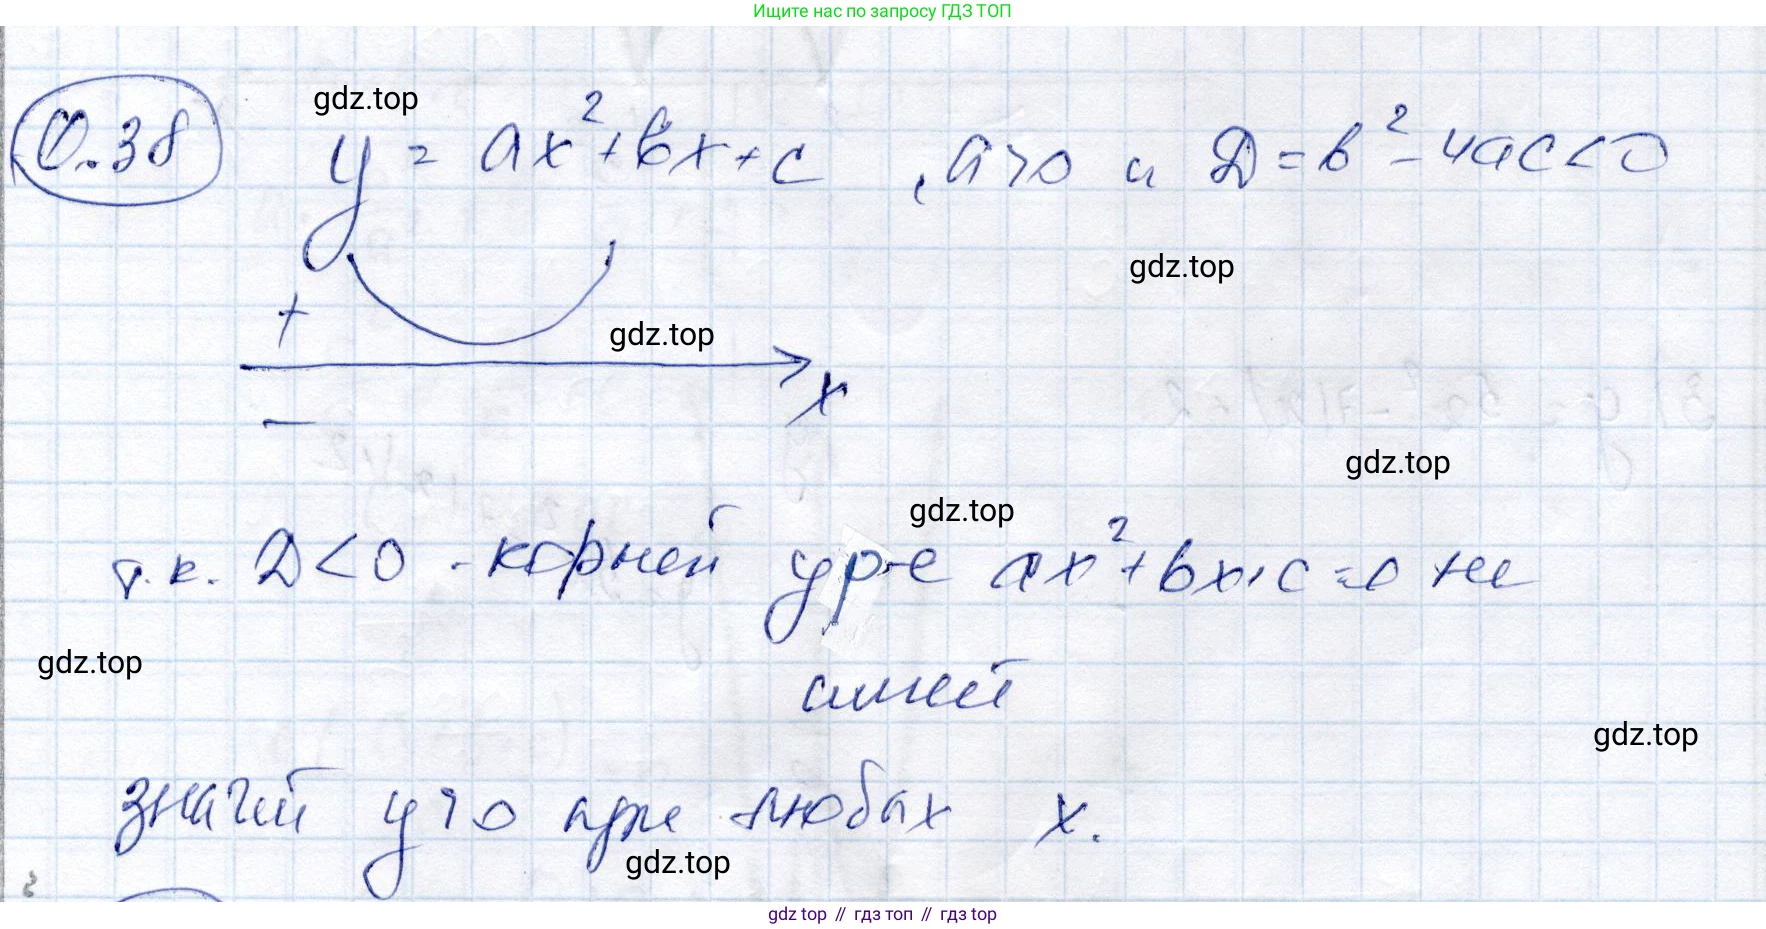 Ищите нас по запросу ГДЗ ТОП
gdz.top
0.38 y = ax²+bx+c , a>0 и D=b²-4ac<0
gdz.top
+
gdz.top
x
−
gdz.top
gdz.top
т.к. D<0 - корней ур-е ax²+bx+c=0 не
gdz.top
имеет
gdz.top
значит y>0 при любых x.
gdz.top
gdz top // гдз топ // gdz top